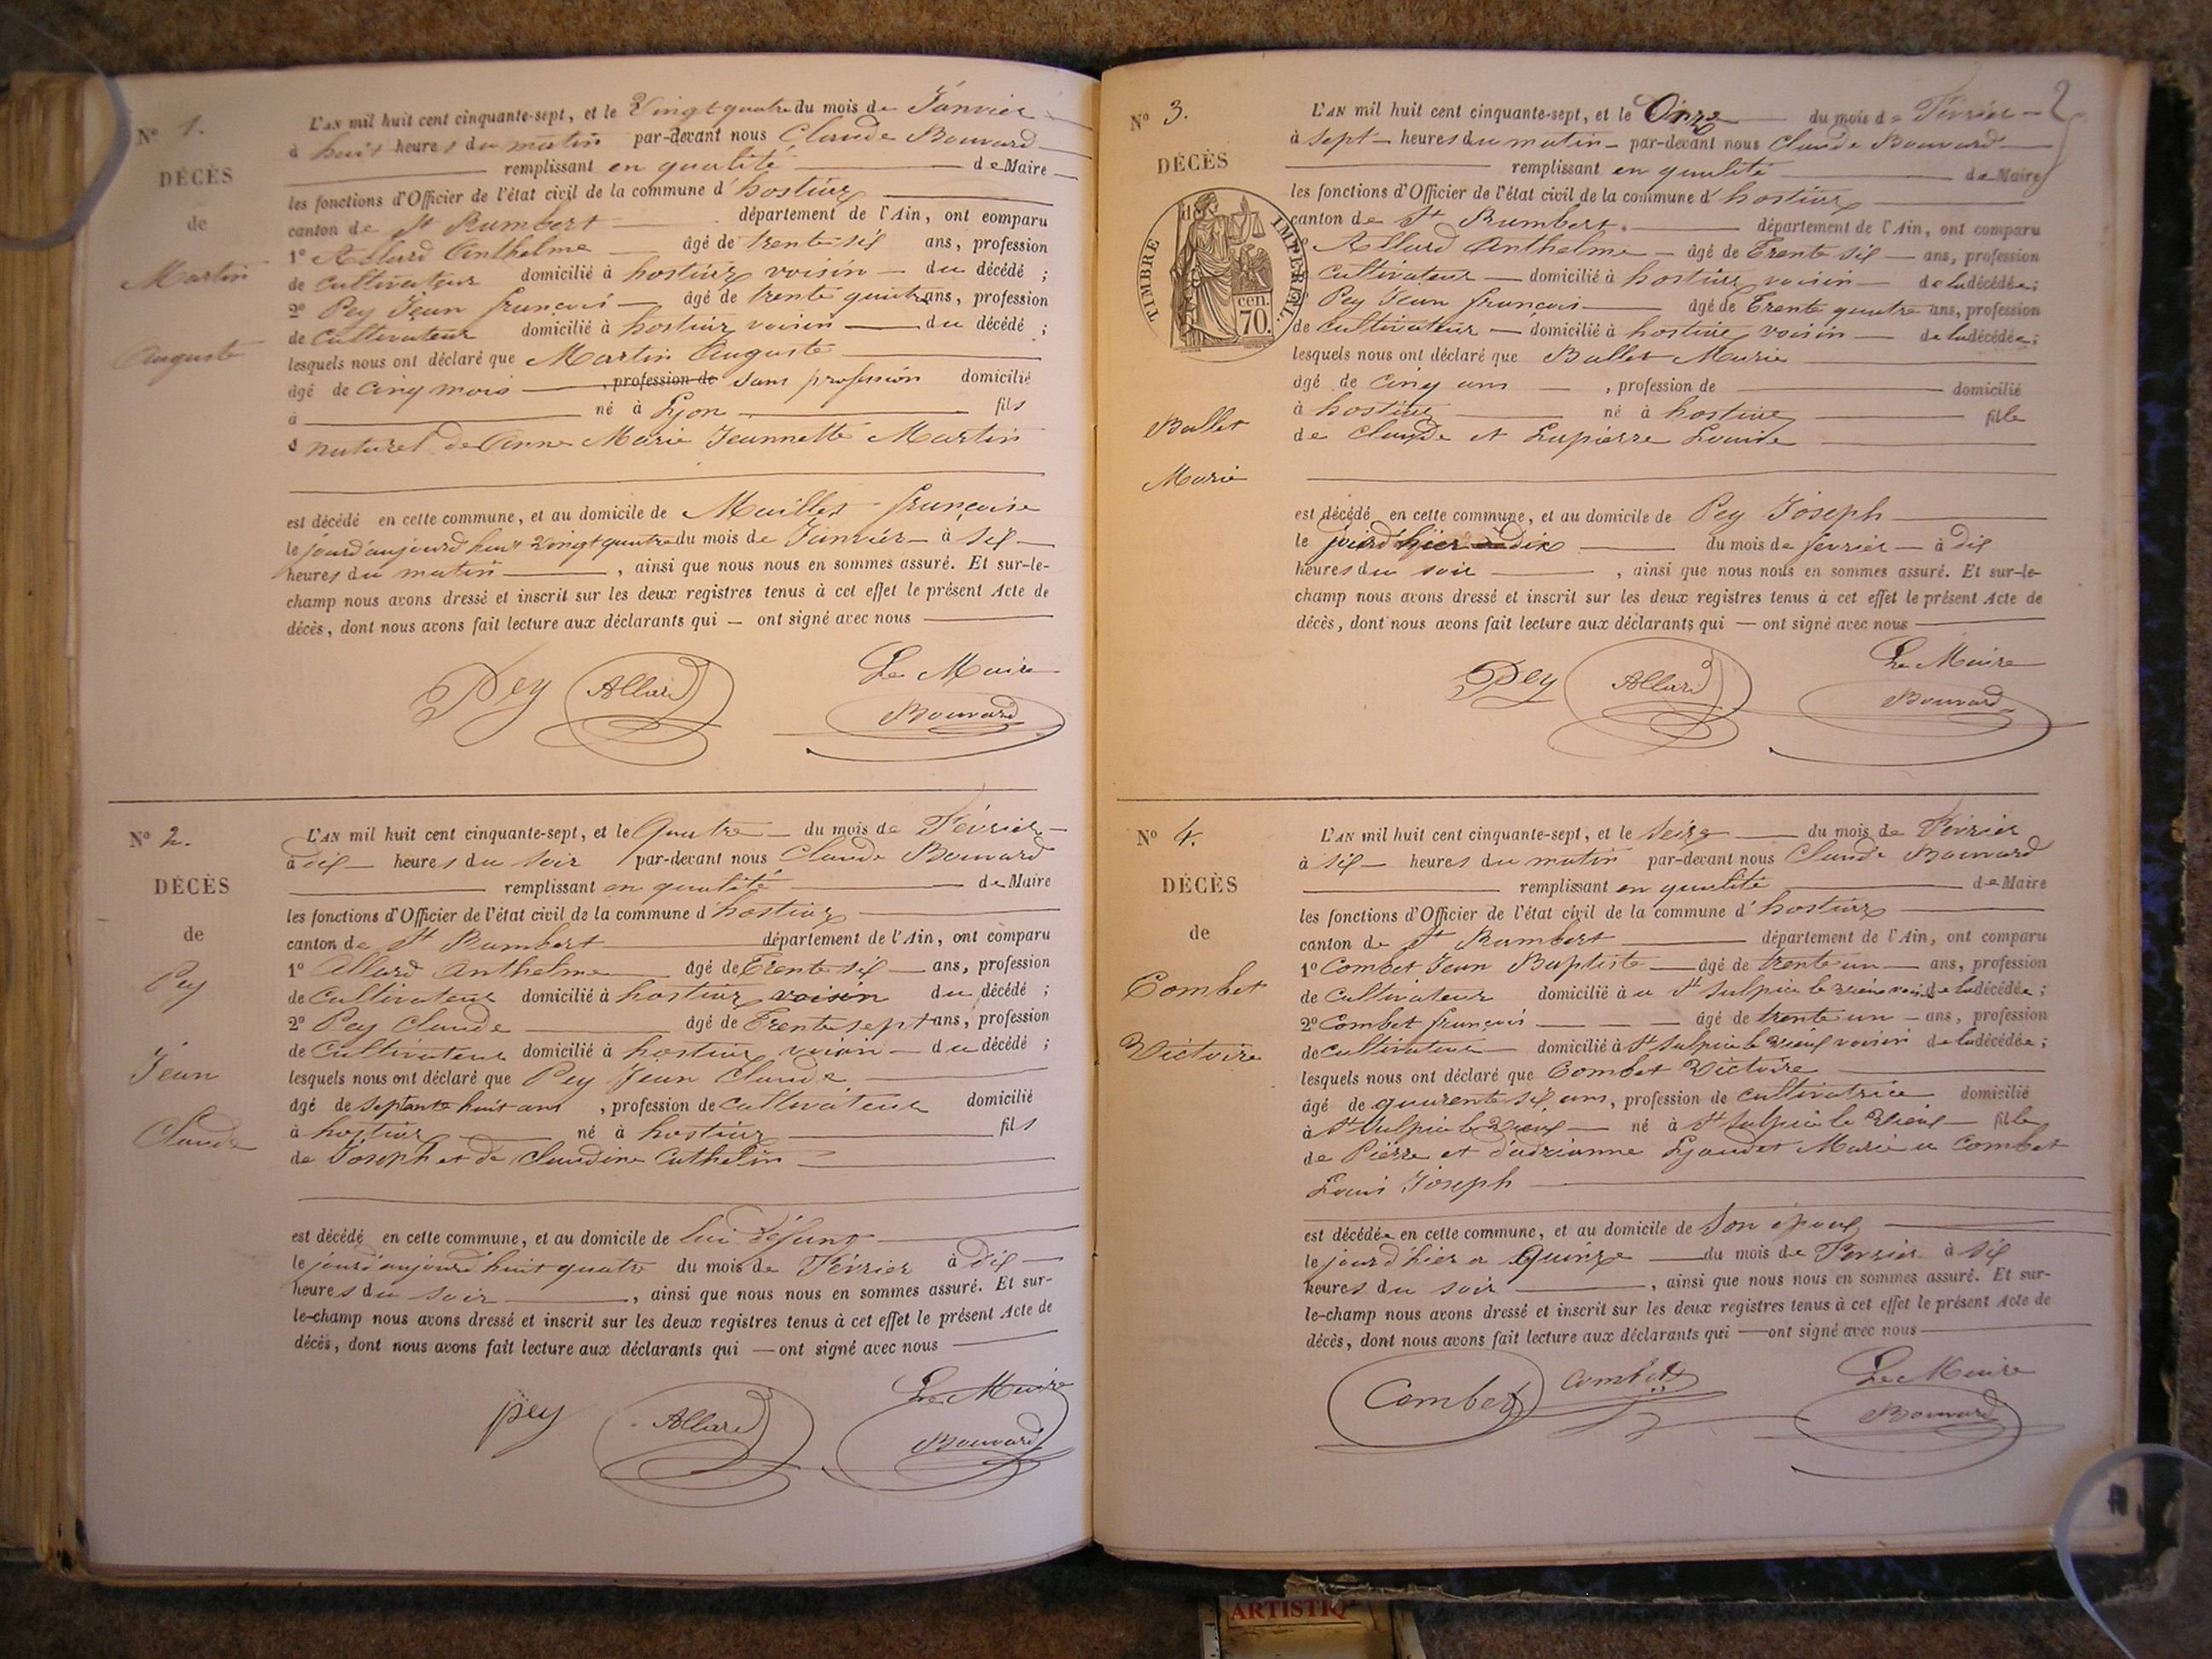 N° 1.
DÉCÈS
de
Martin
Auguste
L'AN mil huit cent cinquante-sept, et le Vingt quatre du mois de Janvier
à huit heures du matin par-devant nous Claude Bouvard
remplissant en qualité de Maire
les fonctions d'Officier de l'état civil de la commune d'hostiaz
canton de St Rambert département de l'Ain, ont comparu
1° Allard Anthelme âgé de trente six ans, profession
de Cultivateur domicilié à hostiaz voisin du décédé ;
2° Pey Jean françois âgé de trente quatre ans, profession
de Cultivateur domicilié à hostiaz voisin du décédé ;
lesquels nous ont déclaré que Martin Auguste
âgé de cinq mois , profession de sans profession domicilié
à né à Lyon fils
naturel de Anne Marie Jeannette Martin
est décédé en cette commune, et au domicile de Maillet françoise
le jourd'aujourd'huit Vingt quatre du mois de Janvier à six
heures du matin , ainsi que nous nous en sommes assuré. Et sur-le-
champ nous avons dressé et inscrit sur les deux registres tenus à cet effet le présent Acte de
décès, dont nous avons fait lecture aux déclarants qui — ont signé avec nous
Le Maire
Pey Allard Bouvard
N° 2.
DÉCÈS
de
Pey
Jean
Claude
L'AN mil huit cent cinquante-sept, et le Quatre du mois de Février
à dix heures du soir par-devant nous Claude Bouvard
remplissant en qualité de Maire
les fonctions d'Officier de l'état civil de la commune d'hostiaz
canton de St Rambert département de l'Ain, ont comparu
1° Allard Anthelme âgé de Trente six ans, profession
de Cultivateur domicilié à hostiaz voisin du décédé ;
2° Pey Claude âgé de Trente sept ans, profession
de Cultivateur domicilié à hostiaz voisin du décédé ;
lesquels nous ont déclaré que Pey Jean Claude
âgé de septante huit ans , profession de cultivateur domicilié
à hostiaz né à hostiaz fils
de Joseph et de Claudine Cathelin
est décédé en cette commune, et au domicile de lui défunt
le jourd'aujourd'huit quatre du mois de Février à dix
heures du soir , ainsi que nous nous en sommes assuré. Et sur-
le-champ nous avons dressé et inscrit sur les deux registres tenus à cet effet le présent Acte de
décès, dont nous avons fait lecture aux déclarants qui — ont signé avec nous
Le Maire
pey Allard Bouvard
2
N° 3.
DÉCÈS
TIMBRE IMPERIAL
cen.
70.
Ballet
Marie
L'AN mil huit cent cinquante-sept, et le Onze du mois de Février
à sept heures du matin par-devant nous Claude Bouvard
remplissant en qualité de Maire
les fonctions d'Officier de l'état civil de la commune d'hostiaz
canton de St Rambert département de l'Ain, ont comparu
Allard Anthelme âgé de Trente six ans, profession
Cultivateur domicilié à hostiaz voisin de la décédée ;
Pey Jean françois âgé de Trente quatre ans, profession
de cultivateur domicilié à hostiaz voisin de la décédée ;
lesquels nous ont déclaré que Ballet Marie
âgé de cinq ans , profession de domicilié
à hostiaz né à hostiaz fille
de Claude et Lapierre Louise
est décédé en cette commune, et au domicile de Pey Joseph
le jourd'hier dix du mois de fevrier à dix
heures du soir , ainsi que nous nous en sommes assuré. Et sur-le-
champ nous avons dressé et inscrit sur les deux registres tenus à cet effet le présent Acte de
décès, dont nous avons fait lecture aux déclarants qui — ont signé avec nous
Le Maire
Pey Allard Bouvard
N° 4.
DÉCÈS
de
Combet
Victoire
L'AN mil huit cent cinquante-sept, et le Seize du mois de Février
à six heures du matin par-devant nous Claude Bouvard
remplissant en qualité de Maire
les fonctions d'Officier de l'état civil de la commune d'hostiaz
canton de St Rambert département de l'Ain, ont comparu
1° Combet Jean Baptiste âgé de trente un ans, profession
de Cultivateur domicilié à a St Sulpice le vieux de la décédée ;
2° Combet françois âgé de trente un ans, profession
de cultivateur domicilié à St Sulpice le Vieux voisin de la décédée ;
lesquels nous ont déclaré que Combet Victoire
âgé de quarente six ans, profession de cultivatrice domicilié
à St Sulpice le Vieux né à St Sulpice le Vieux fille
de Pierre et d'adrianne Lyaudet Marie a Combet
Louis Joseph
est décédée en cette commune, et au domicile de son époux
le jourd'hier a Quinze du mois de Fevrier à six
heures du soir , ainsi que nous nous en sommes assuré. Et sur-
le-champ nous avons dressé et inscrit sur les deux registres tenus à cet effet le présent Acte de
décès, dont nous avons fait lecture aux déclarants qui — ont signé avec nous
Le Maire
Combet Combet Bouvard
ARTISTIQ